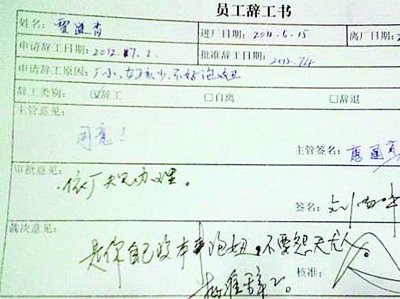 员工辞工书
姓名: 贾 进厂日期: 2011.6.15 离厂日期:
申请辞工日期: 2012. 7. 2. 批准辞工日期: 2012.7.4
申请辞工原因: 厂小, 女孩少, 不好泡妞
辞工类别: ☑辞工 □自离 □辞退
主管意见:
同意!
主管签名:
审批意见:
依厂规办理。
签名: 刘
裁决意见:
是你自己没本事泡妞, 不要怨天尤人。
核准:
批准辞工。